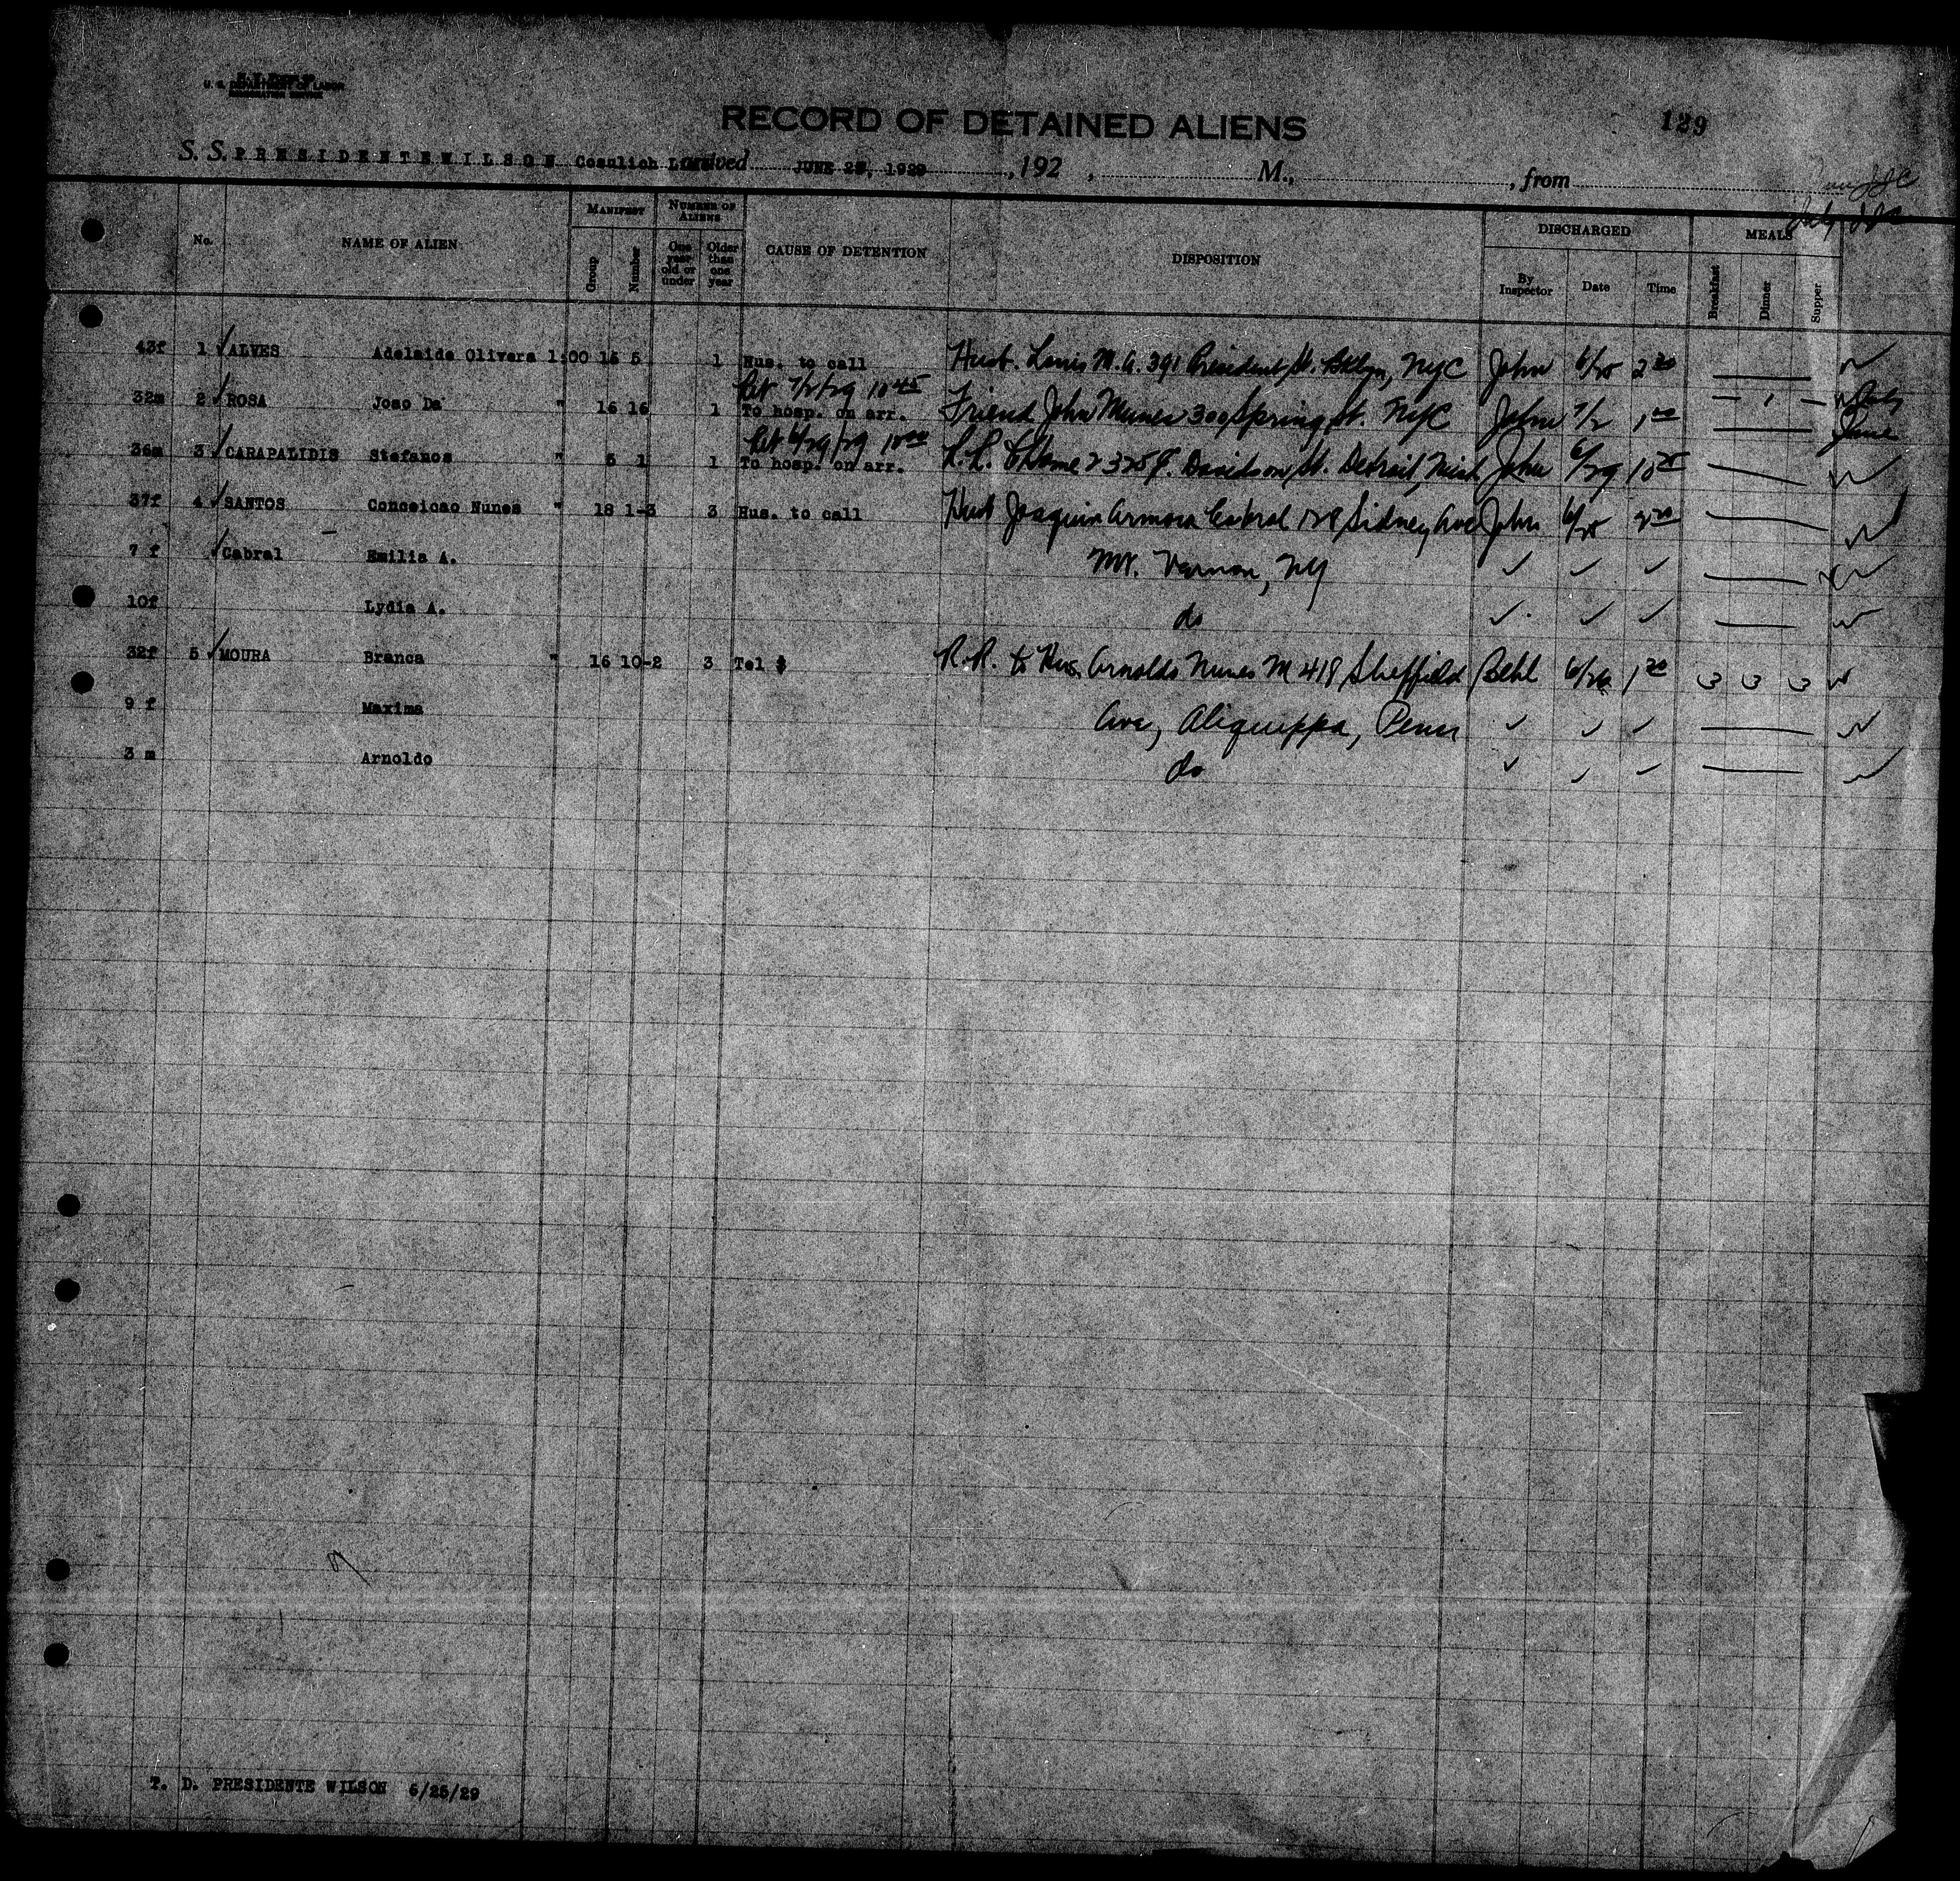 U. S. DEPARTMENT OF LABOR
RECORD OF DETAINED ALIENS
129
S. S. PRESIDENTE WILSON Cosulich Line Arrived JUNE 25, 1929, 192 , M., , from
No. NAME OF ALIEN MANIFEST Group Number NUMBER OF ALIENS One year old or under Older than one year CAUSE OF DETENTION DISPOSITION DISCHARGED By Inspector Date Time MEALS Breakfast Dinner Supper
43f 1 ✓ ALVES Adelaide Olivera 1:00 16 5 1 Hus. to call Husb. Louis M. A. 391 President St. Bklyn, NYC John 6/25 2 30
Ret 7/2/29 10 45
32m 2 ✓ ROSA Joao Da " 16 16 1 To hosp. on arr. Friend John Nunes 300 Spring St. NYC John 7/2 1 00 July
June
Ret 6/29/29 10 00
36m 3 ✓ CARAPALIDIS Stefanos " 5 1 1 To hosp. on arr. Davidson St. Detroit, Mich John 6/29 10 25
37f 4 ✓ SANTOS Conceicao Nunes " 18 1-3 3 Hus. to call Husb Joaquin Cabral 128 Sidney Ave John 6/25 2 30
7 f ✓ Cabral Emilia A. Mt. Vernon, NY ✓ ✓ ✓
10f Lydia A. do ✓ ✓ ✓
32f 5 ✓ MOURA Branca " 16 10-2 3 Tel $ R.R. to Hus. Arnoldo Nunes M 418 Sheffield 6/26 1 30 3 3 3
9 f Maxima Ave, Aliquippa, Penn ✓ ✓ ✓
3 m Arnoldo do ✓ ✓ ✓
T. D. PRESIDENTE WILSON 6/25/29